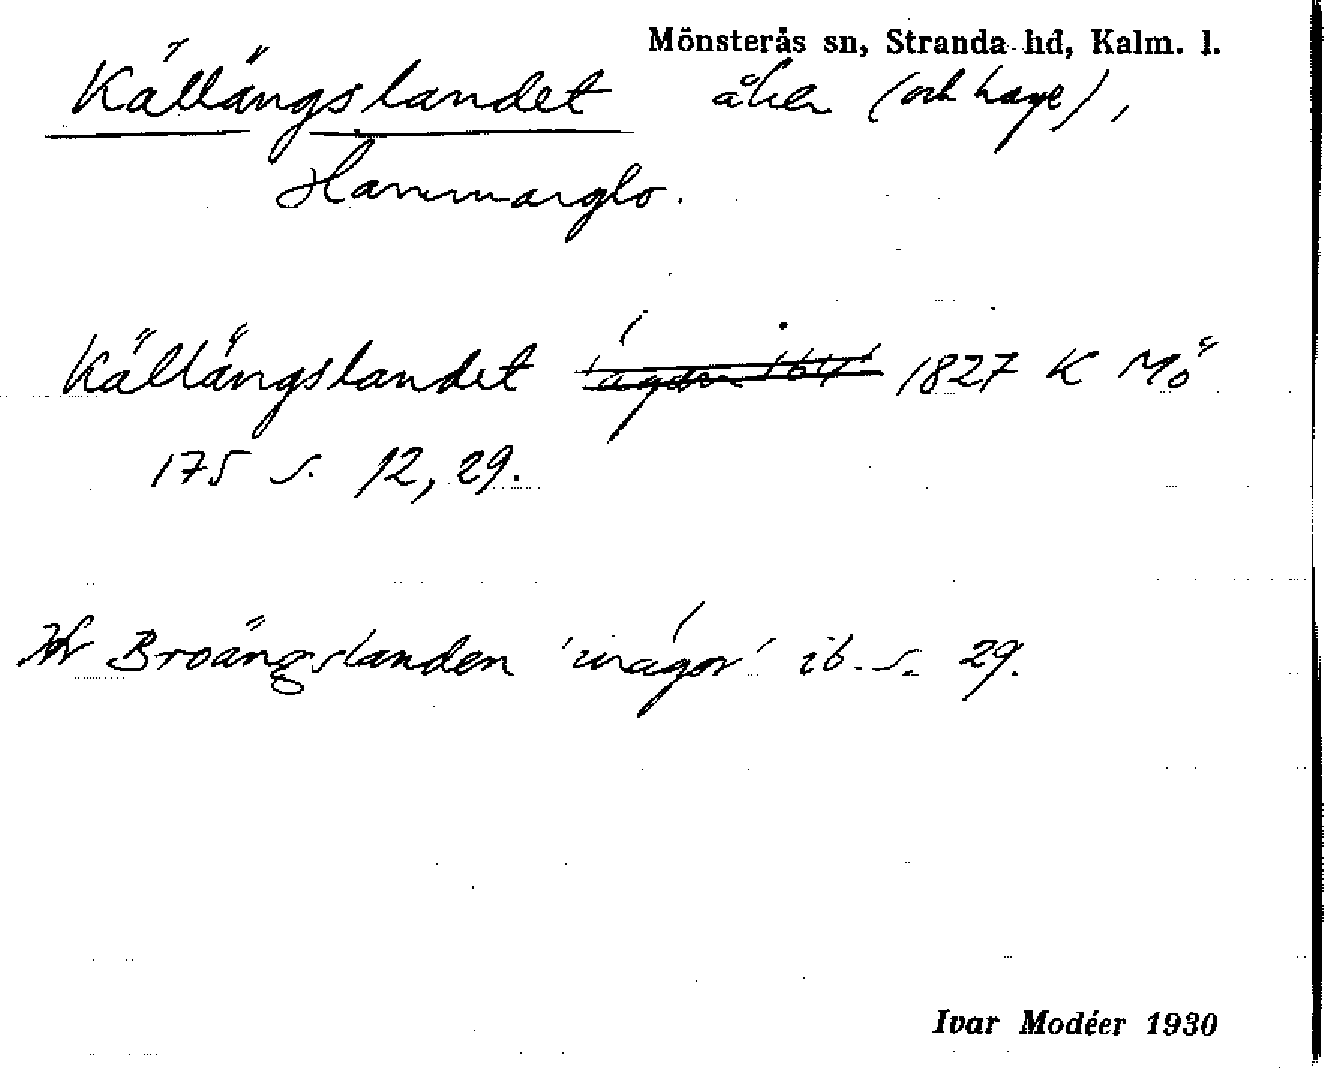 Mönsterås sn, Stranda hd, Kalm. l.
Källängslandet åker (och hage),
Hammarglo.
Källängslandet 1827 K Mö
175 s. 12, 29.
Broängslanden 'inägor' ib. s. 29.
Ivar Modéer 1930